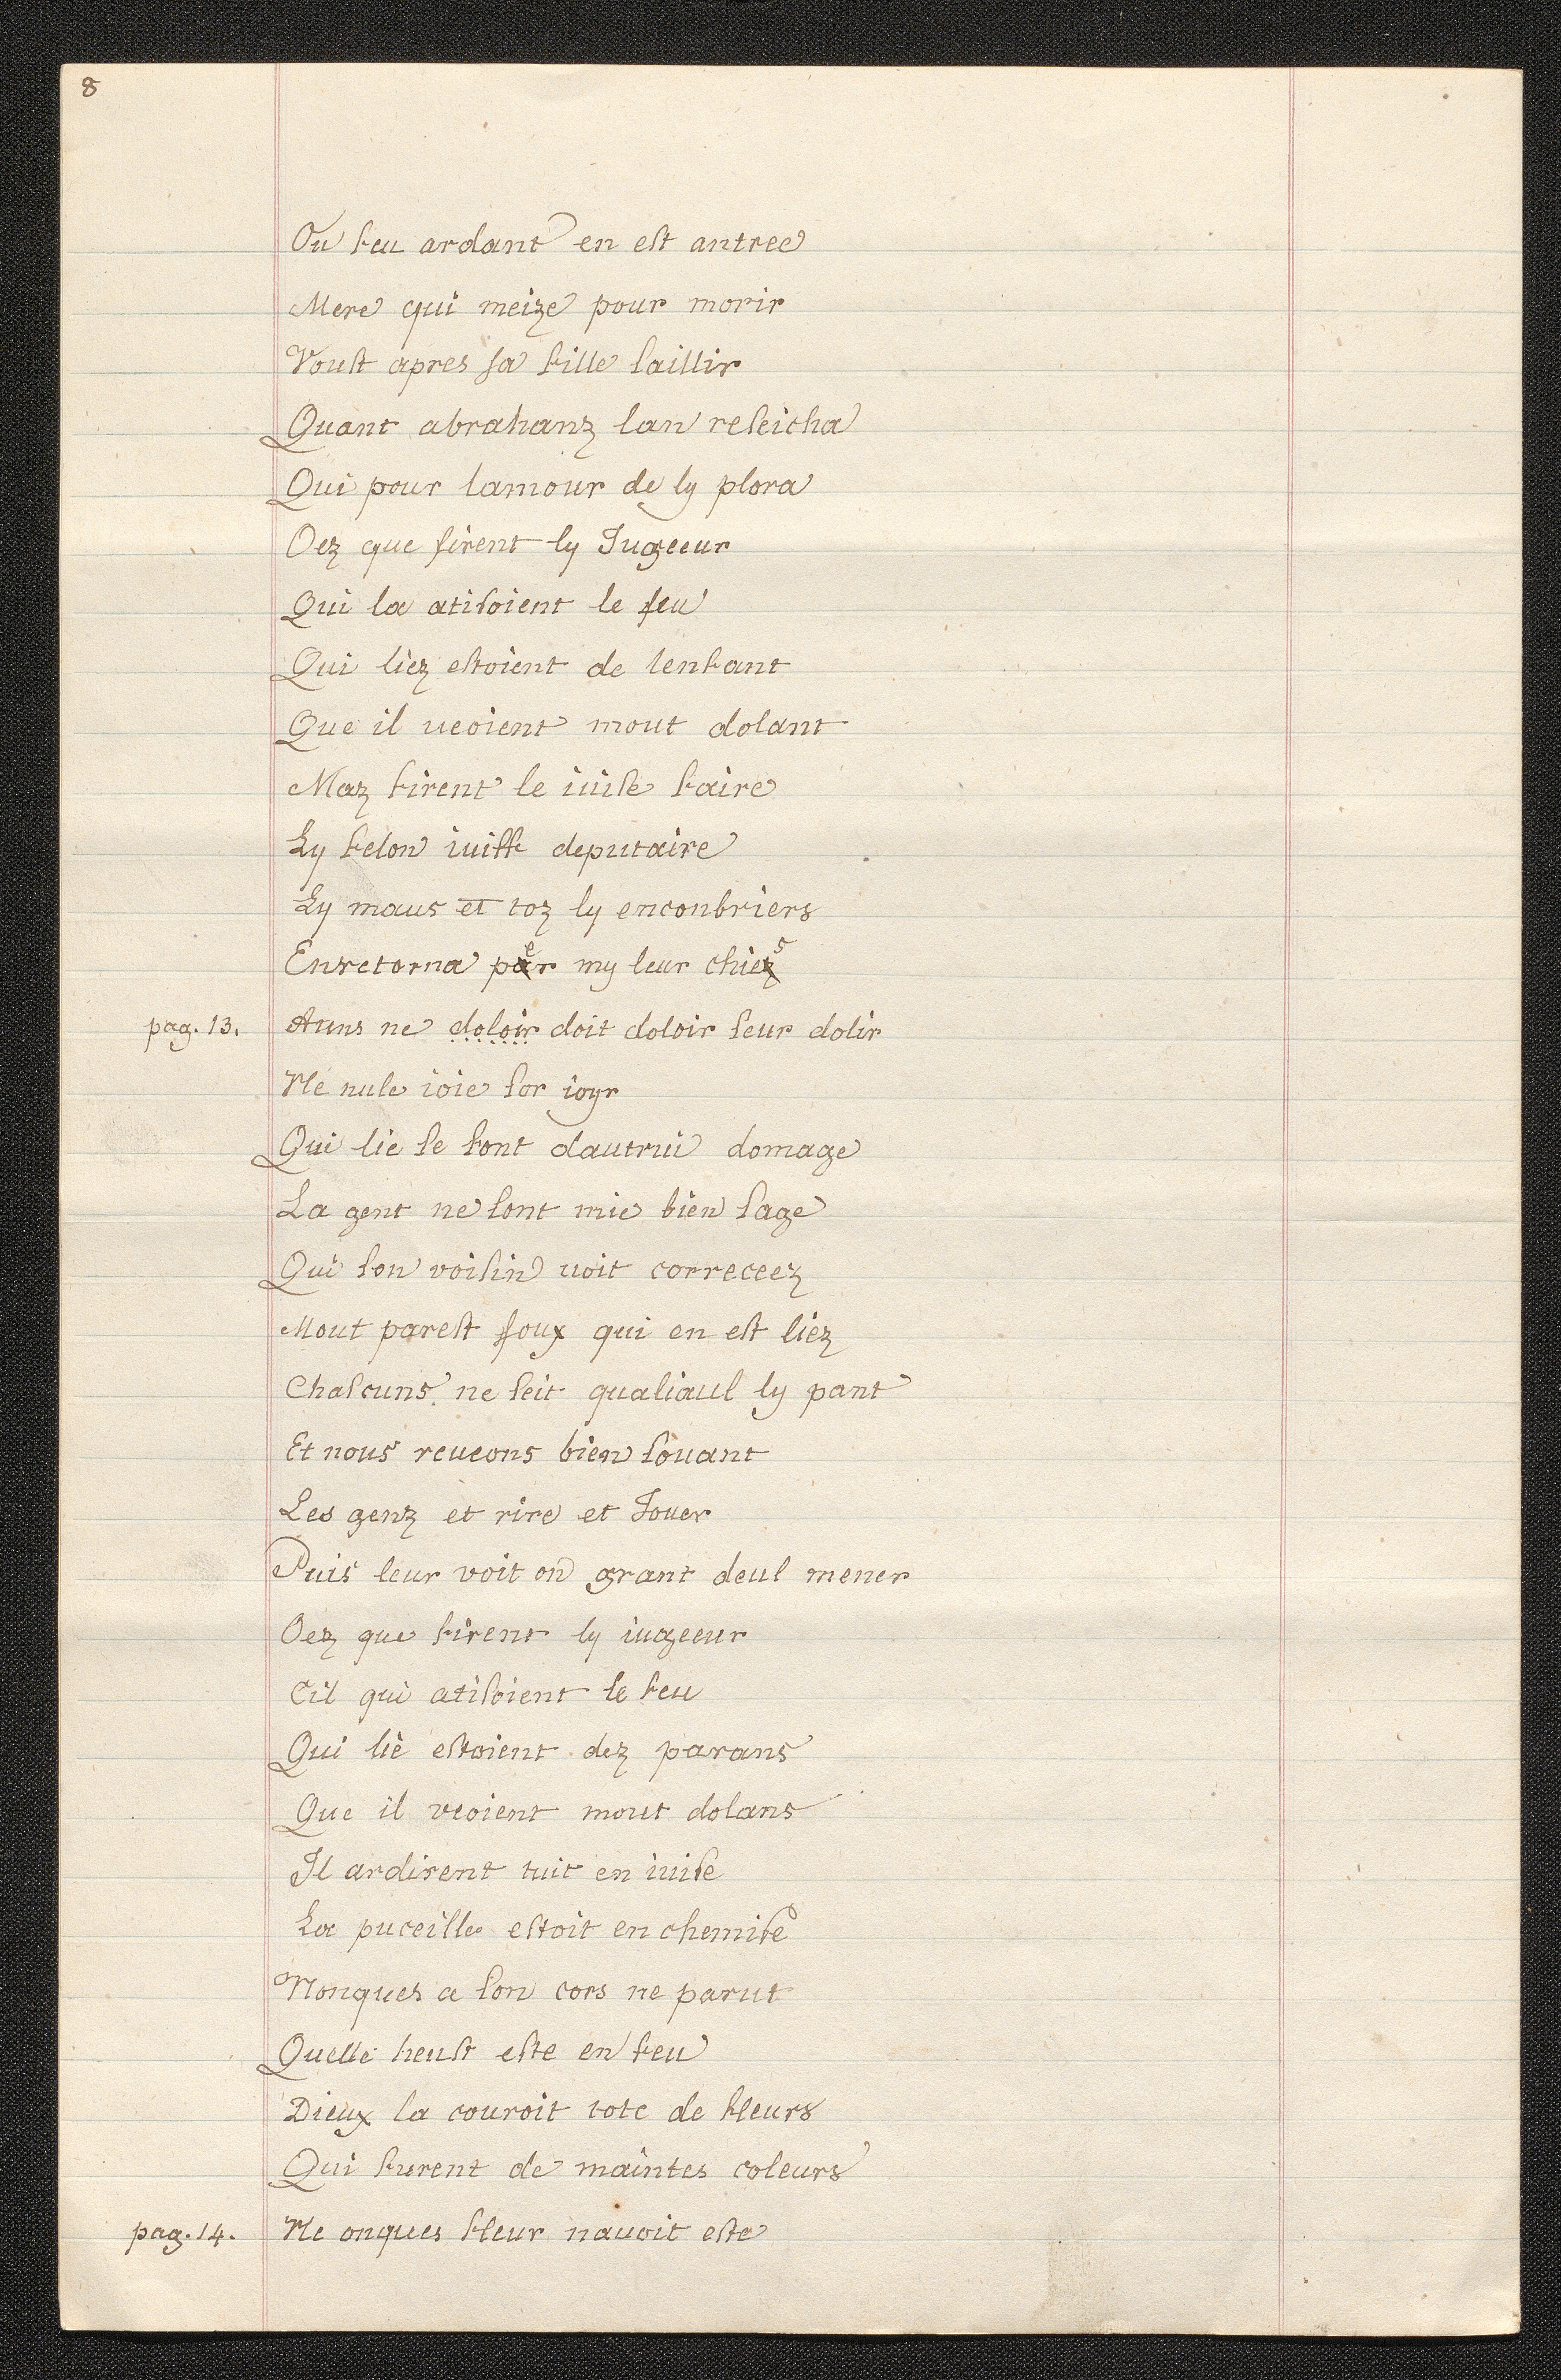 8
Ou feu ardant en est antree
Mere qui meize pour morir
Voust apres sa fille saillir
Quant abrahanz lan reseicha
Qui pour lamour de ly plora
Oez que firent ly Jugeeur
Qui la atisoient le feu
Qui liez estoient de lenfant
Que il ueoient mout dolant
Maz firent le iuise faire
Ly felon iuiff deputaire
Ly maus et toz ly enconbriers
Enretorna per my leur chies
pag. 13. Auns ne doloir doit doloir seur dolir
Ne nule ioie sor ioyr
Qui lie se font dautrui domage
La gent ne sont mie bien sage
Qui son voisin uoit correceez
Mout parest foux qui en est liez
Chascuns ne seit qualiaul ly pant
Et nous reueons bien souant
Les genz et rire et Jouer
Puis leur voit on grant deul mener
Oez que firent ly iugeeur
Cil qui atisoient le feu
Qui lie estoient dez parans
Que il veoient mout dolans
Il ardirent tuit en iuise
La puceille estoit en chemise
Nonques a son cors ne parut
Quelle heust este en feu
Dieux la couroit tote de fleurs
Qui furent de maintes coleurs
pag. 14. Ne onques fleur nauoit este